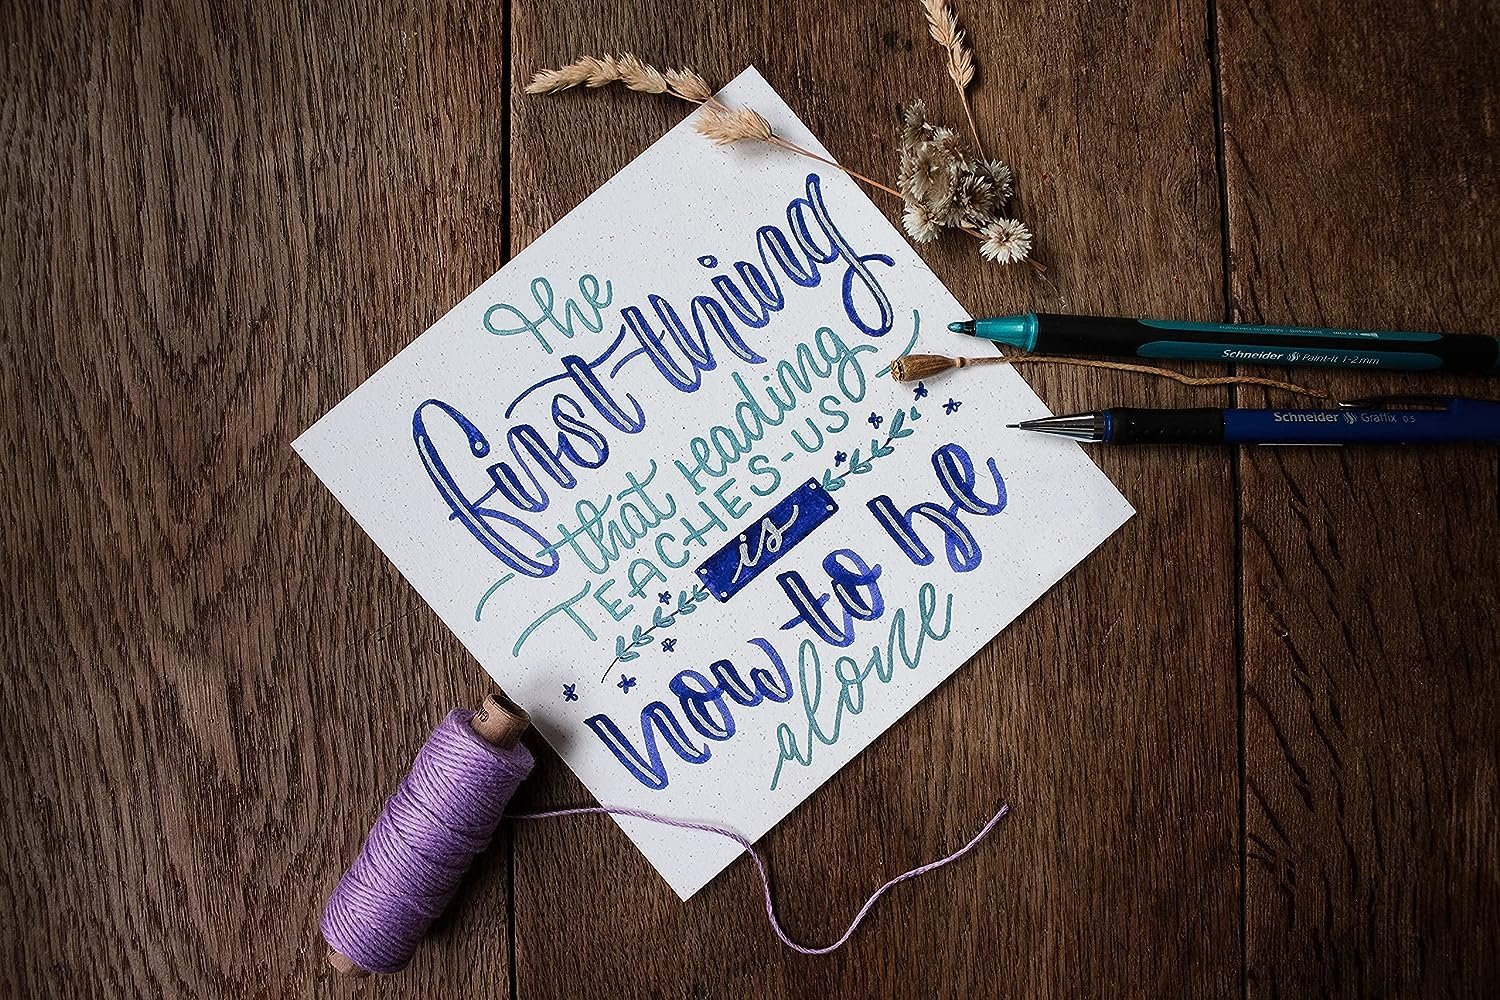 The
first thing
that reading
TEACHES-US
is
how to be
alone
Schneider Paint-it 1-2 mm
Schneider Graffix 0.5